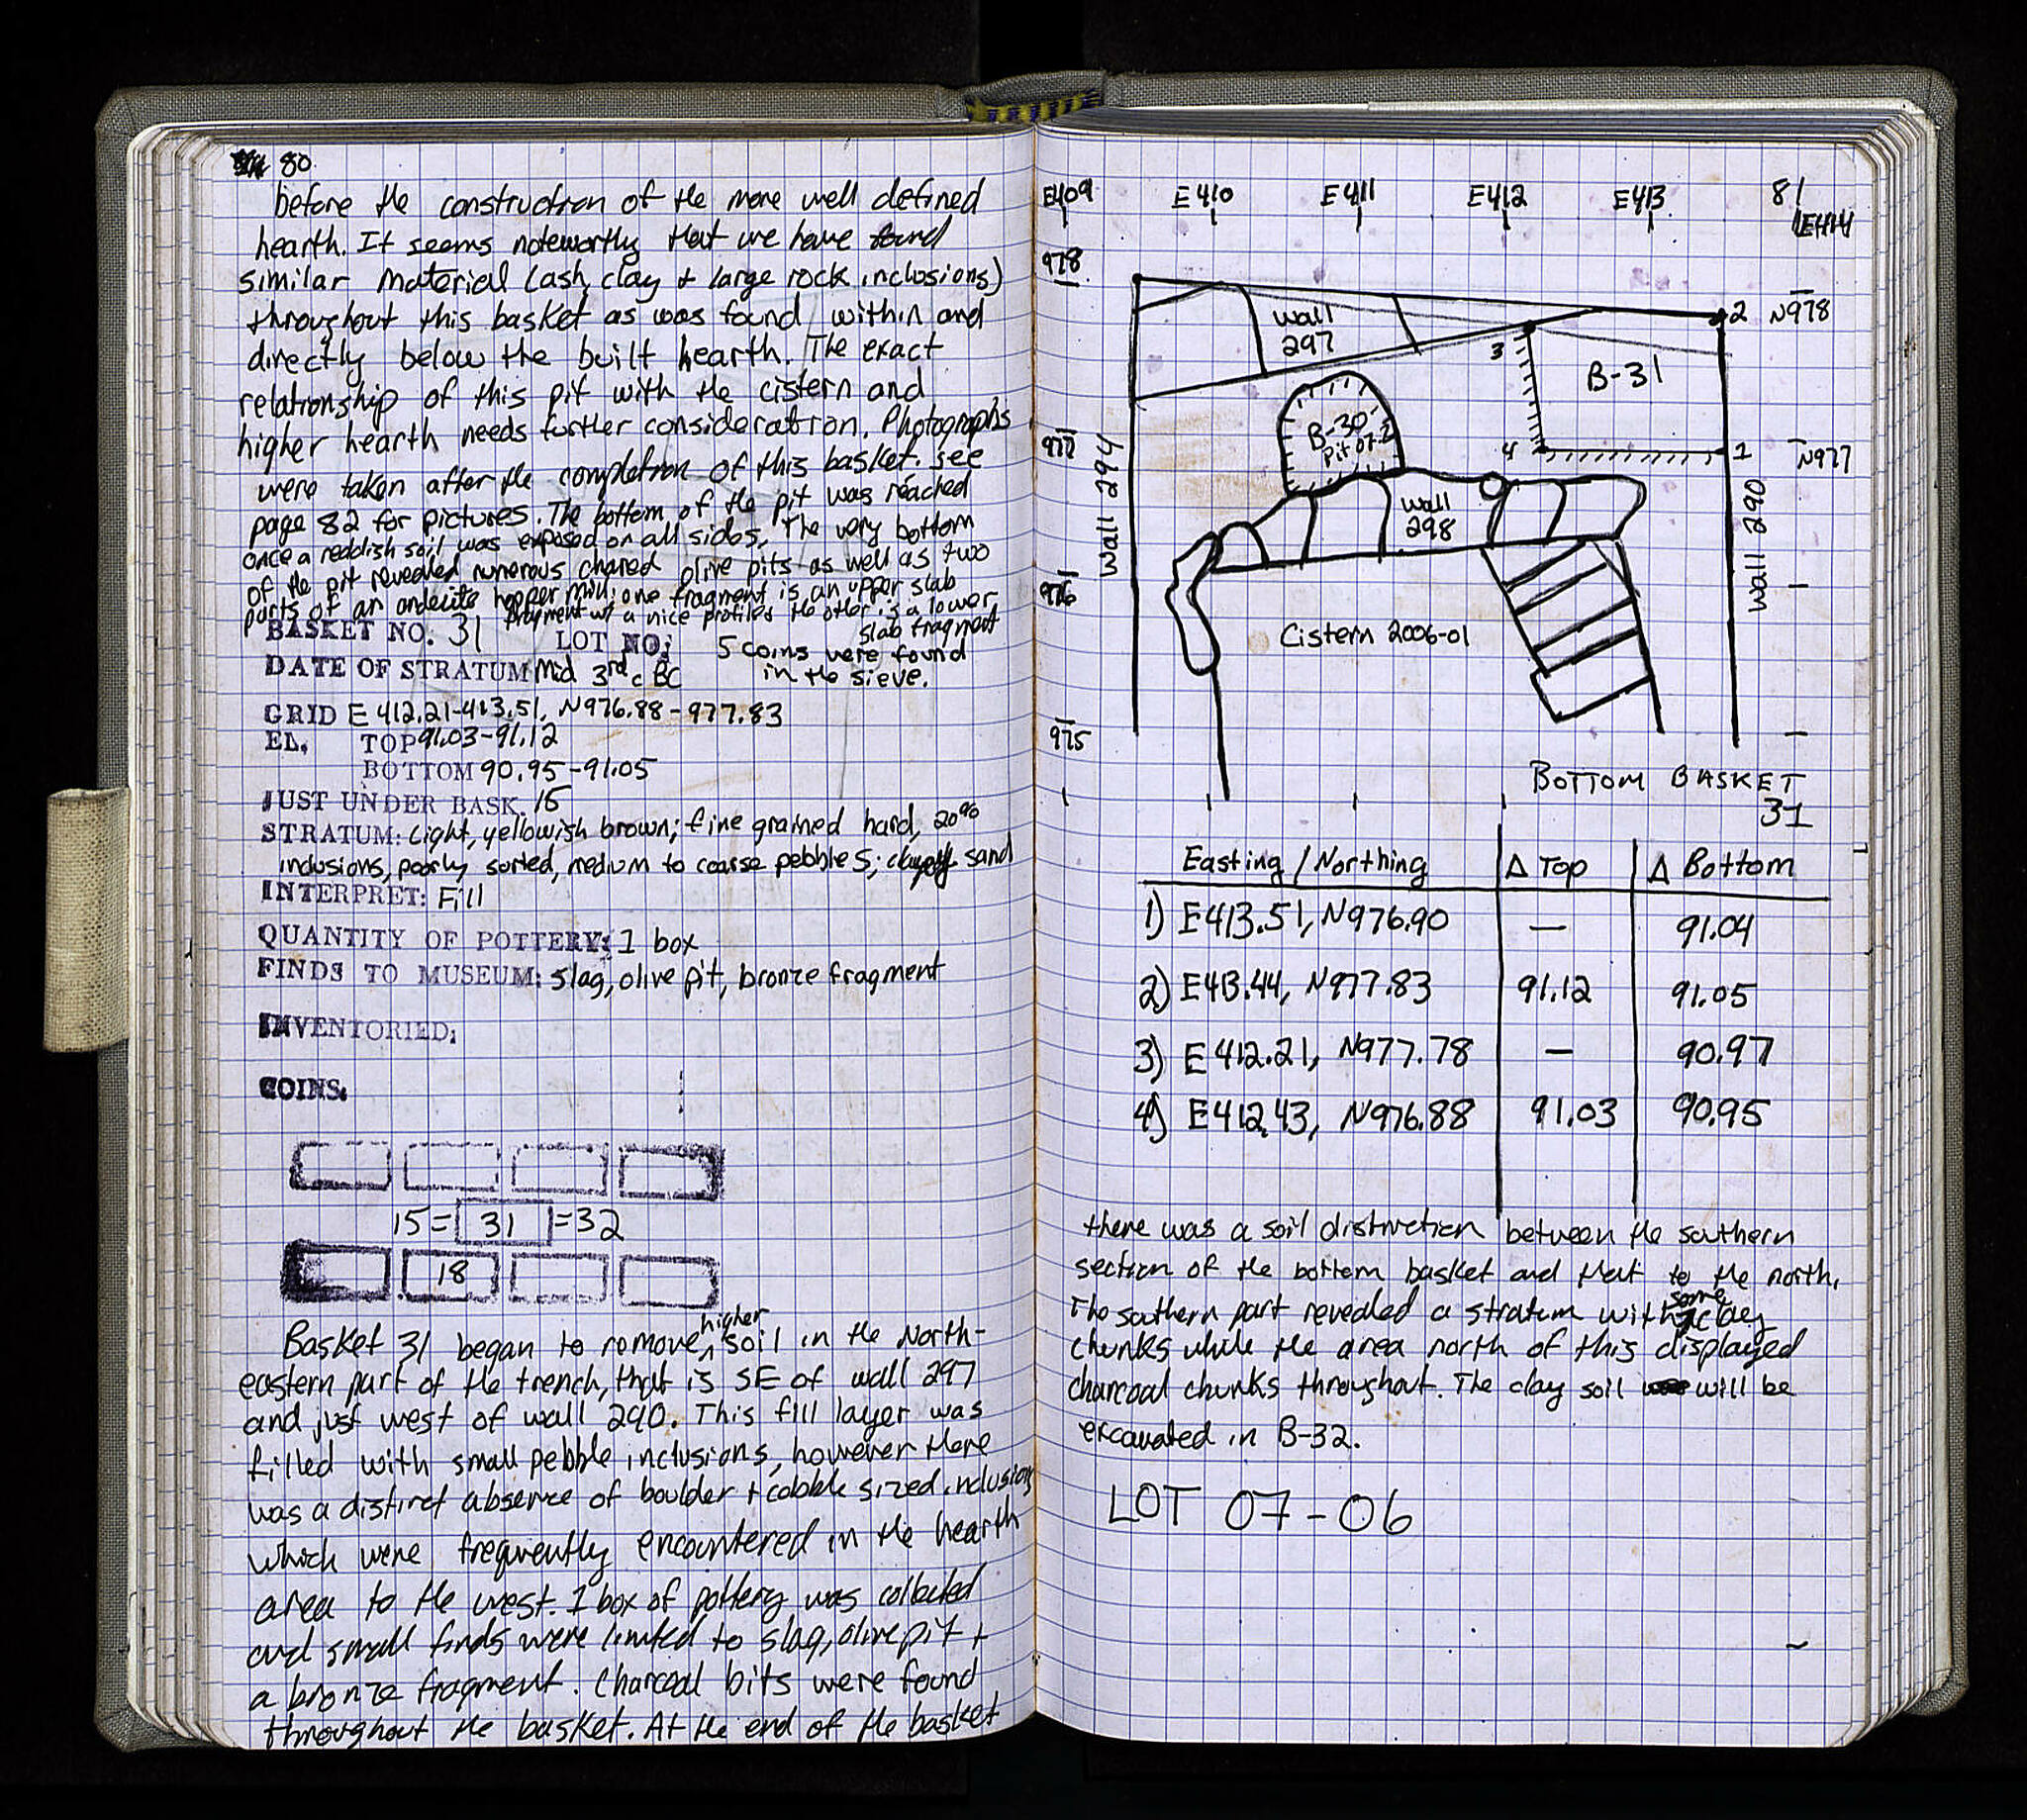 80
before the construction of the more well defined
hearth. It seems noteworthy that we have found
similar material (ash, clay + large rock inclusions)
throughout this basket as was found within and
directly below the built hearth. The exact
relationship of this pit with the cistern and
higher hearth needs further consideration. Photographs
were taken after the completion of this basket. see
page 82 for pictures. The bottom of the pit was reached
once a reddish soil was exposed on all sides. The very bottom
of the pit revealed numerous chared olive pits as well as two
parts of an andecite hopper mill; one fragment is an upper slab
fragment w/ a nice profiled the other is a lower
slab fragment
BASKET NO. 31 LOT NO; 5 coins were found
DATE OF STRATUM Mid 3rd c BC in the sieve.
GRID E 412.21-413.51, N976.88-977.83
EL. TOP 91.03-91.12
BOTTOM 90.95-91.05
JUST UNDER BASK. 15
STRATUM: Light, yellowish brown; fine grained hard, 20%
inclusions, poorly sorted, medium to coarse pebbles; clayey sand
INTERPRET: Fill
QUANTITY OF POTTERY: 1 box
FINDS TO MUSEUM: slag, olive pit, bronze fragment
INVENTORIED:
COINS.
15= 31 =32
18
Basket 31 began to remove higher soil in the North-
eastern part of the trench, that is SE of wall 297
and just west of wall 290. This fill layer was
filled with small pebble inclusions, however there
was a distinct absence of boulder + cobble sized inclusions
which were frequently encountered in the hearth
area to the west. 1 box of pottery was collected
and small finds were limited to slag, olive pit +
a bronze fragment. Charcoal bits were found
throughout the basket. At the end of the basket
81
E409 E410 E411 E412 E413 E414
978
Wall 297
2 N978
3
B-31
B-30
Pit 07-2
977
4
1 N977
Wall 294
Wall 298
Wall 290
976
Cistern 2006-01
975
BOTTOM BASKET
31
Easting / Northing Δ Top Δ Bottom
1) E413.51, N976.90 — 91.04
2) E413.44, N977.83 91.12 91.05
3) E412.21, N977.78 — 90.97
4) E412.43, N976.88 91.03 90.95
there was a soil distinction between the southern
section of the bottom basket and that to the north.
The southern part revealed a stratum with some clay
chunks while the area north of this displayed
charcoal chunks throughout. The clay soil will be
excavated in B-32.
LOT 07-06